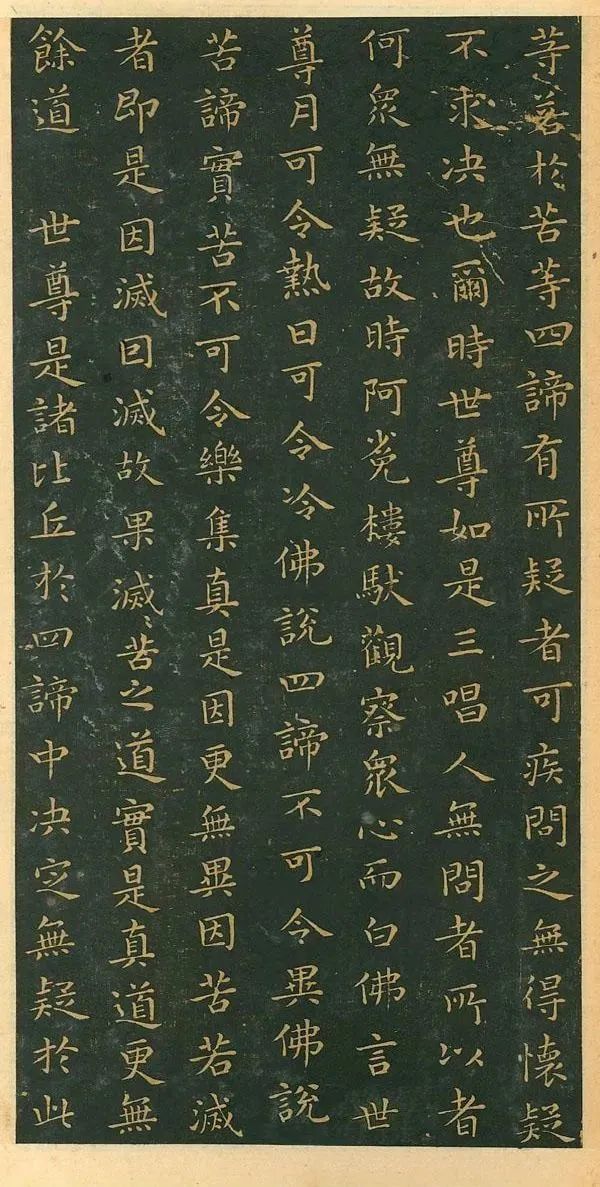 等若於苦等四諦有所疑者可疾問之無得懷疑
不求决也爾時世尊如是三唱人無問者所以者
何衆無疑故時阿㝹樓馱觀察衆心而白佛言世
尊月可令熱日可令冷佛說四諦不可令異佛說
苦諦實苦不可令樂集真是因更無異因苦若滅
者即是因滅因滅故果滅滅苦之道實是真道更無
餘道 世尊是諸比丘於四諦中决定無疑於此